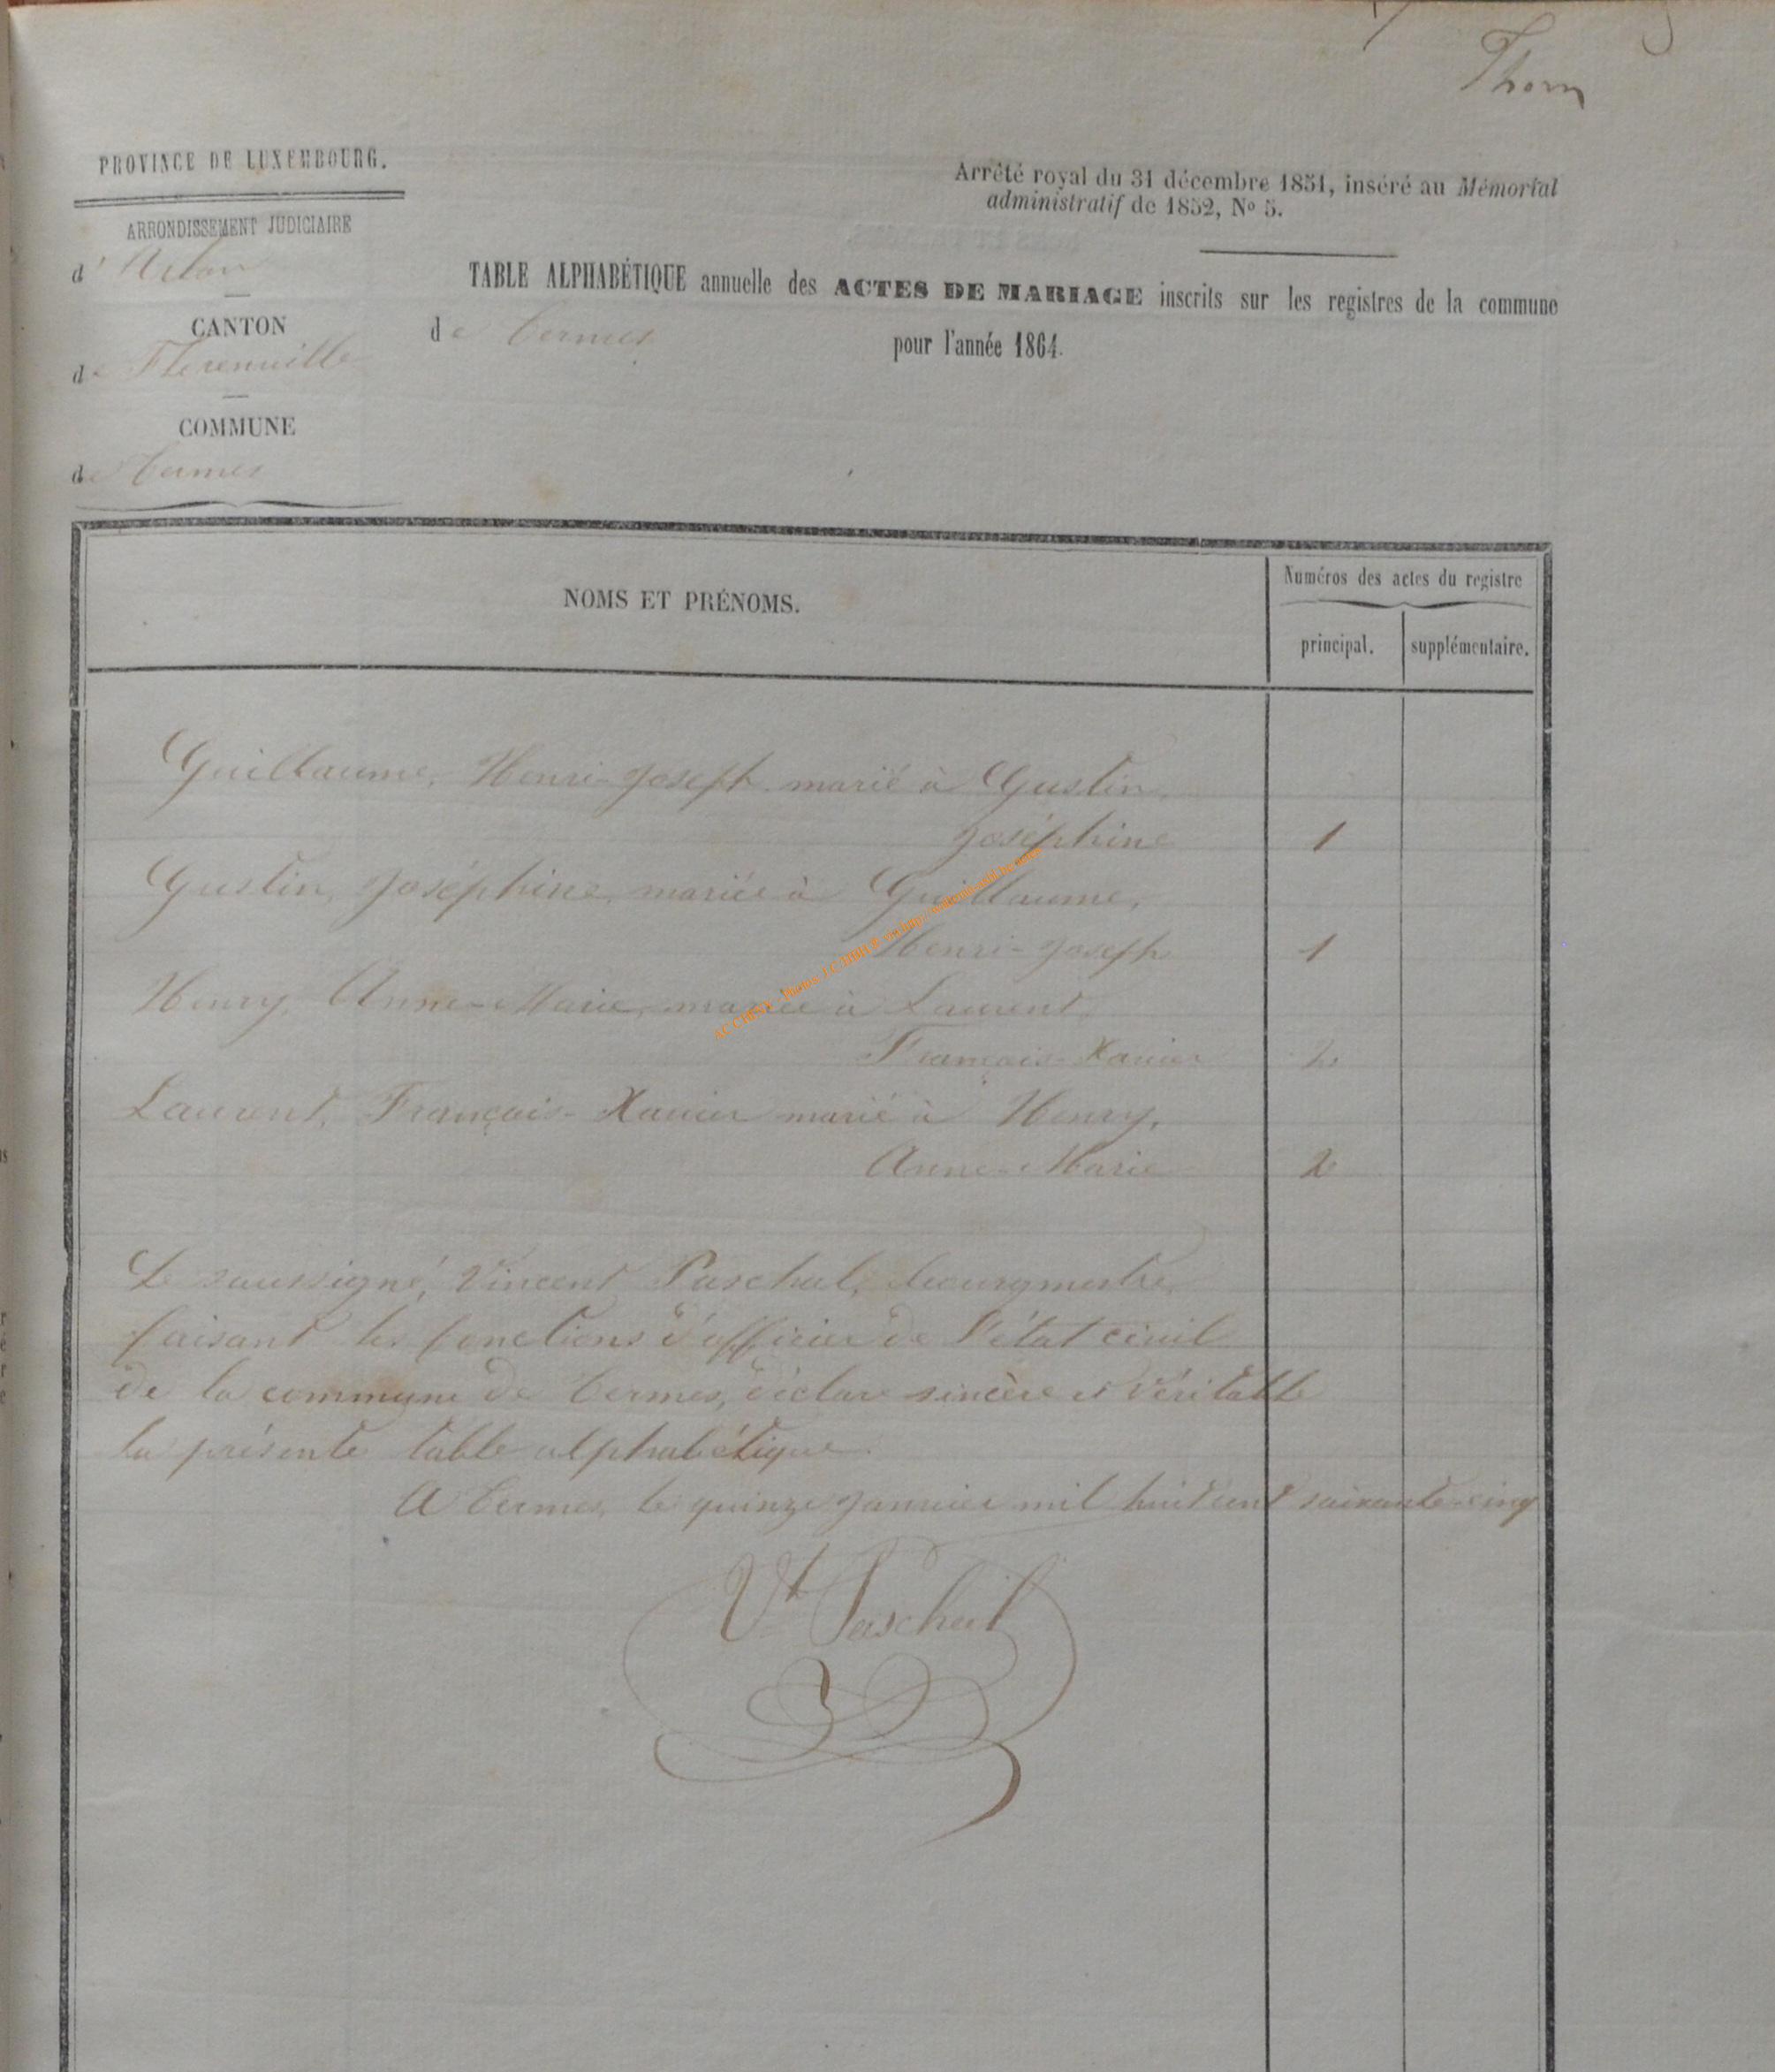 Thom
PROVINCE DE LUXEMBOURG.
ARRONDISSEMENT JUDICIAIRE
d'Arlon
CANTON
de Florenville
COMMUNE
de Termes
Arrêté royal du 31 décembre 1851, inséré au Mémorial
administratif de 1852, No 5.
TABLE ALPHABÉTIQUE annuelle des ACTES DE MARIAGE inscrits sur les registres de la commune
de Termes
pour l'année 1864.
NOMS ET PRÉNOMS.
Numéros des actes du registre
principal. supplémentaire.
Guillaume, Henri-Joseph marié à Gustin,
Joséphine 1
Gustin, Joséphine, mariée à Guillaume,
Henri-Joseph 1
Henry, Anne-Marie, mariée à Laurent,
François-Xavier 2
Laurent, François-Xavier marié à Henry,
Anne-Marie 2
Le soussigné, Vincent Paschal, bourgmestre,
faisant les fonctions d'officier de l'état civil
de la commune de Termes, déclare sincère et véritable
la présente table alphabétique.
A Termes, le quinze Janvier mil huit cent soixante-cinq
Vt Paschal